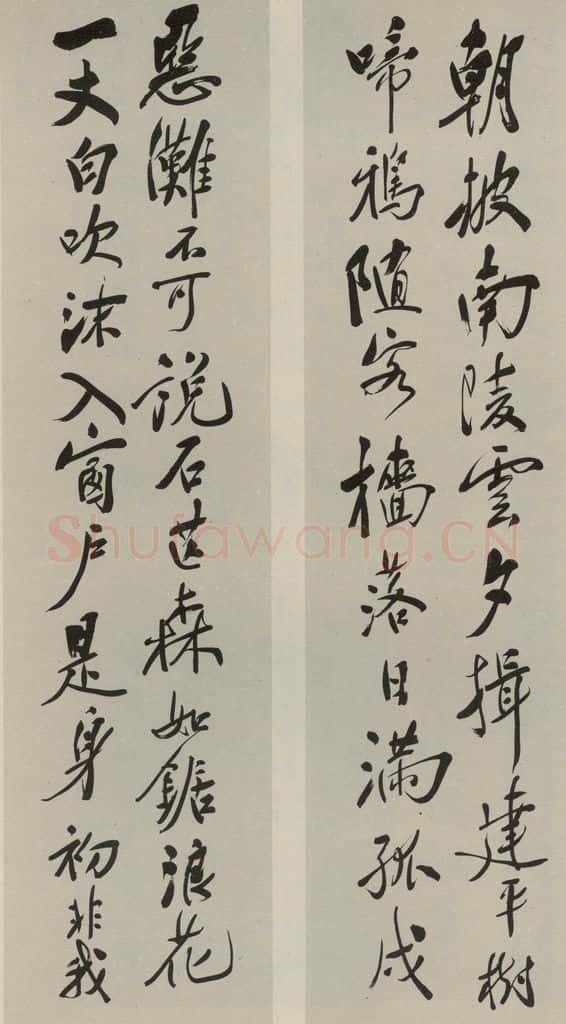 朝披南陵雲夕揖建平樹
啼鴉隨客檣落日滿孤戍
惡灘不可說石芒森如鋸浪花
一丈白吹沫入窗户是身初非我
Shufawang.CN